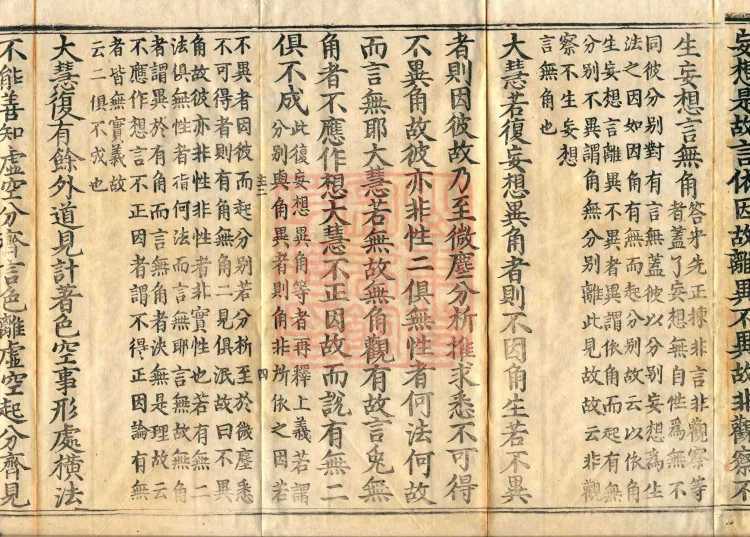 妄想是故言依因故離異不異故非觀察不
生妄想言無角
答牙先正揀非言非觀察等
者蓋了妄想無自性爲無不
同彼分别對有言無蓋彼以分别妄想爲生
法之因如因角生有無而起分别故云以依角
生妄想言離異不異者異謂依角而起有無
分别不異謂角無分别離此見故故云非觀
察不生妄想
言無角也
大慧若復妄想異角者則不因角生若不異
者則因彼故乃至微塵分析推求悉不可得
不異角故彼亦非性二俱無性者何法何故
而言無耶大慧若無故無角觀有故言兔無
角者不應作想大慧不正因故而說有無二
俱不成
此復妄想異角等者再釋上義若謂
分别與角異者則角非所依之因若
不異者因彼而起分别若分析至於微塵悉
不可得者則有角無角二見俱泯故曰不異
角故彼亦非性非性者非實性也若有無二
法俱無性者指何法而言無耶言無故無角
者謂異於有角而言無角者決無是理故云
不應作想言不正因者謂不得正因論有無
者皆無實義故
云二俱不成也
大慧復有餘外道見計著色空事形處橫法
不能善知虛空分齊言色離虛空起分齊見